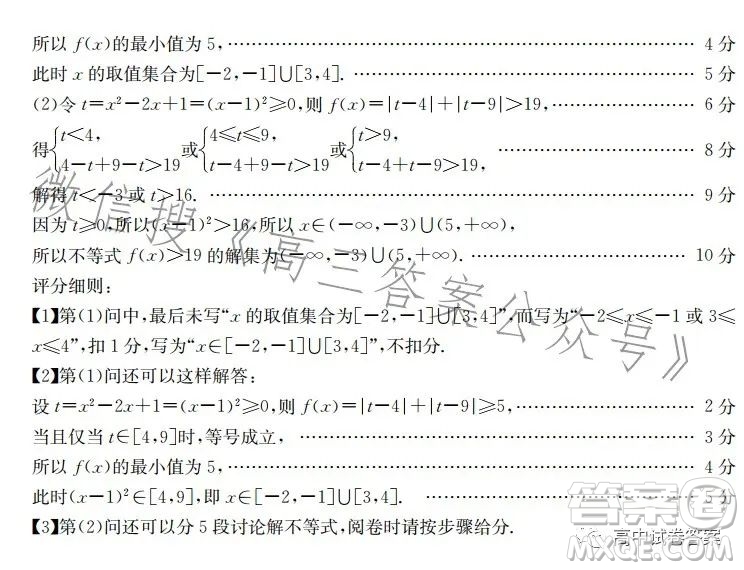 所以 f(x)的最小值为5,…… 4分
此时 x 的取值集合为[-2,-1]∪[3,4]. …… 5分
(2)令 t=x²-2x+1=(x-1)²≥0,则 f(x)=|t-4|+|t-9|>19, …… 6分
得{t<4, 4-t+9-t>19 或{4≤t≤9, t-4+9-t>19 或{t>9, t-4+t-9>19, …… 8分
解得 t<-3 或 t>16. …… 9分
因为 t≥0,所以(x-1)²>16,所以 x∈(-∞,-3)∪(5,+∞),
所以不等式 f(x)>19 的解集为(-∞,-3)∪(5,+∞). …… 10分
评分细则:
【1】第(1)问中,最后未写“x 的取值集合为[-2,-1]∪[3,4]”,而写为“-2≤x≤-1 或 3≤
x≤4”,扣 1 分,写为“x∈[-2,-1]∪[3,4]”,不扣分.
【2】第(1)问还可以这样解答:
设 t=x²-2x+1=(x-1)²≥0,则 f(x)=|t-4|+|t-9|≥5, …… 2分
当且仅当 t∈[4,9]时,等号成立, …… 3分
所以 f(x)的最小值为5, …… 4分
此时(x-1)²∈[4,9],即 x∈[-2,-1]∪[3,4]. …… 5分
【3】第(2)问还可以分 5 段讨论解不等式,阅卷时请按步骤给分.
微信搜《高三答案公众号》
答案圈
高中试卷答案
MXQE.COM